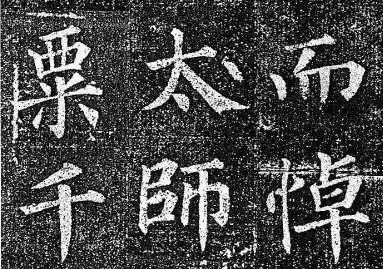 而悼
太師
粟千